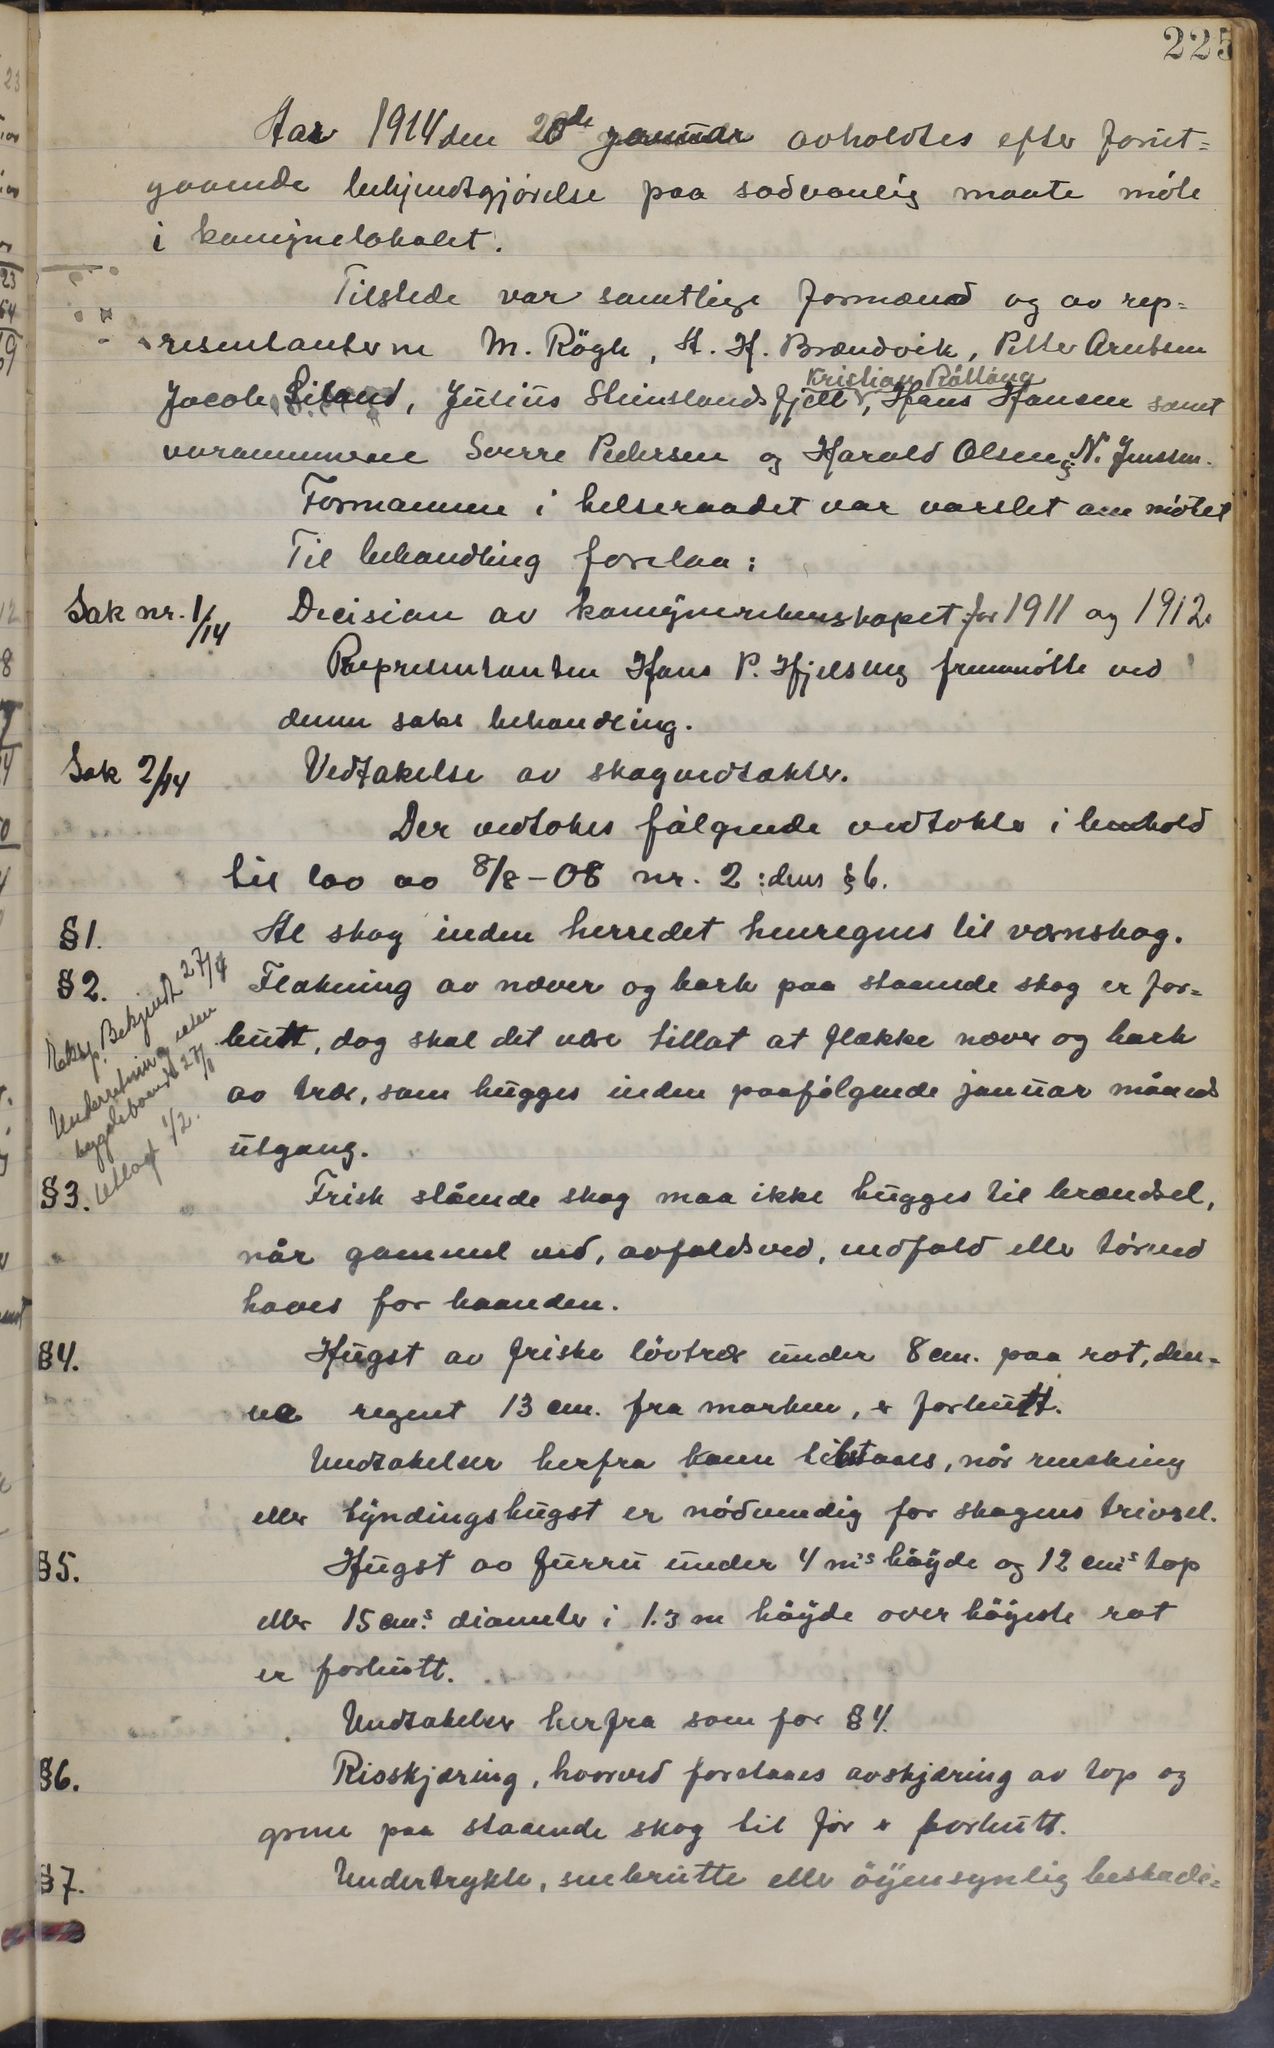 225
Aar 1914 den 20de januar avholdtes efter forut=
gaaende bekjendtgjørelse paa sedvanlig maate möte
i komünelokalet.
Tilstede var samtlige formænd og av rep=
resentanterne M. Rögh, A. H. Brændvik, Petter Arntsen
Kristian Råttäng
Jacob Liland, Jülius Steinslandsfjell, Hans Hansen samt
varamænnene Sverre Pedersen og Harald Olsen og N. Jenssen.
Formannen i helseraadet var varslet om mötet
Til behandling forelaa:
Sak nr. 1/14 Decision av komüneregnskapet for 1911 og 1912.
Representanten Hans P. Hjelseng fremmötte ved
denne saks behandling.
Sak 2/14 Vedtakelse av skogvedtækter.
Der vedtokes fölgende vedtekter i henhold
til lov av 8/8-08 nr. 2: dens § 6.
§1. Al skog inden herredet henregnes til vernskog.
§2. Flækning av never og bark paa staaende skog er for=
butt, dog skal det være tillat at flække never og bark
av træer, som hugges inden paafölgende januar måneds
utgang.
Eksp. Bekjendt 27/4
Underretning uten
bygdeboende 27/8
Utlagt 1/2.
§3. Frisk stående skog maa ikke hugges til brændsel,
når gammel ved, avfaldsved, nedfald eller törved
haves for haanden.
§4. Hugst av friske lövtrær under 8 cm. paa rot, den=
ne regnet 13 cm. fra marken, er forbutt.
Undtakelser herfra kann tilstaaes, når renskning
eller tyndingshugst er nödvendig for skogens trivsel.
§5. Hugst av furru under 4 m's höyde og 12 cm's top
eller 15 cm's diameter i 1.3 m höyde over höyeste rot
er forbutt.
Undtakelser herfra som for § 4.
§6. Risskjæring, hvorved forstaaes avskjæring av top og
grene paa staaende skog til för er forbutt.
§7. Undertrykte, snebrutte eller öyensynlig beskadi=